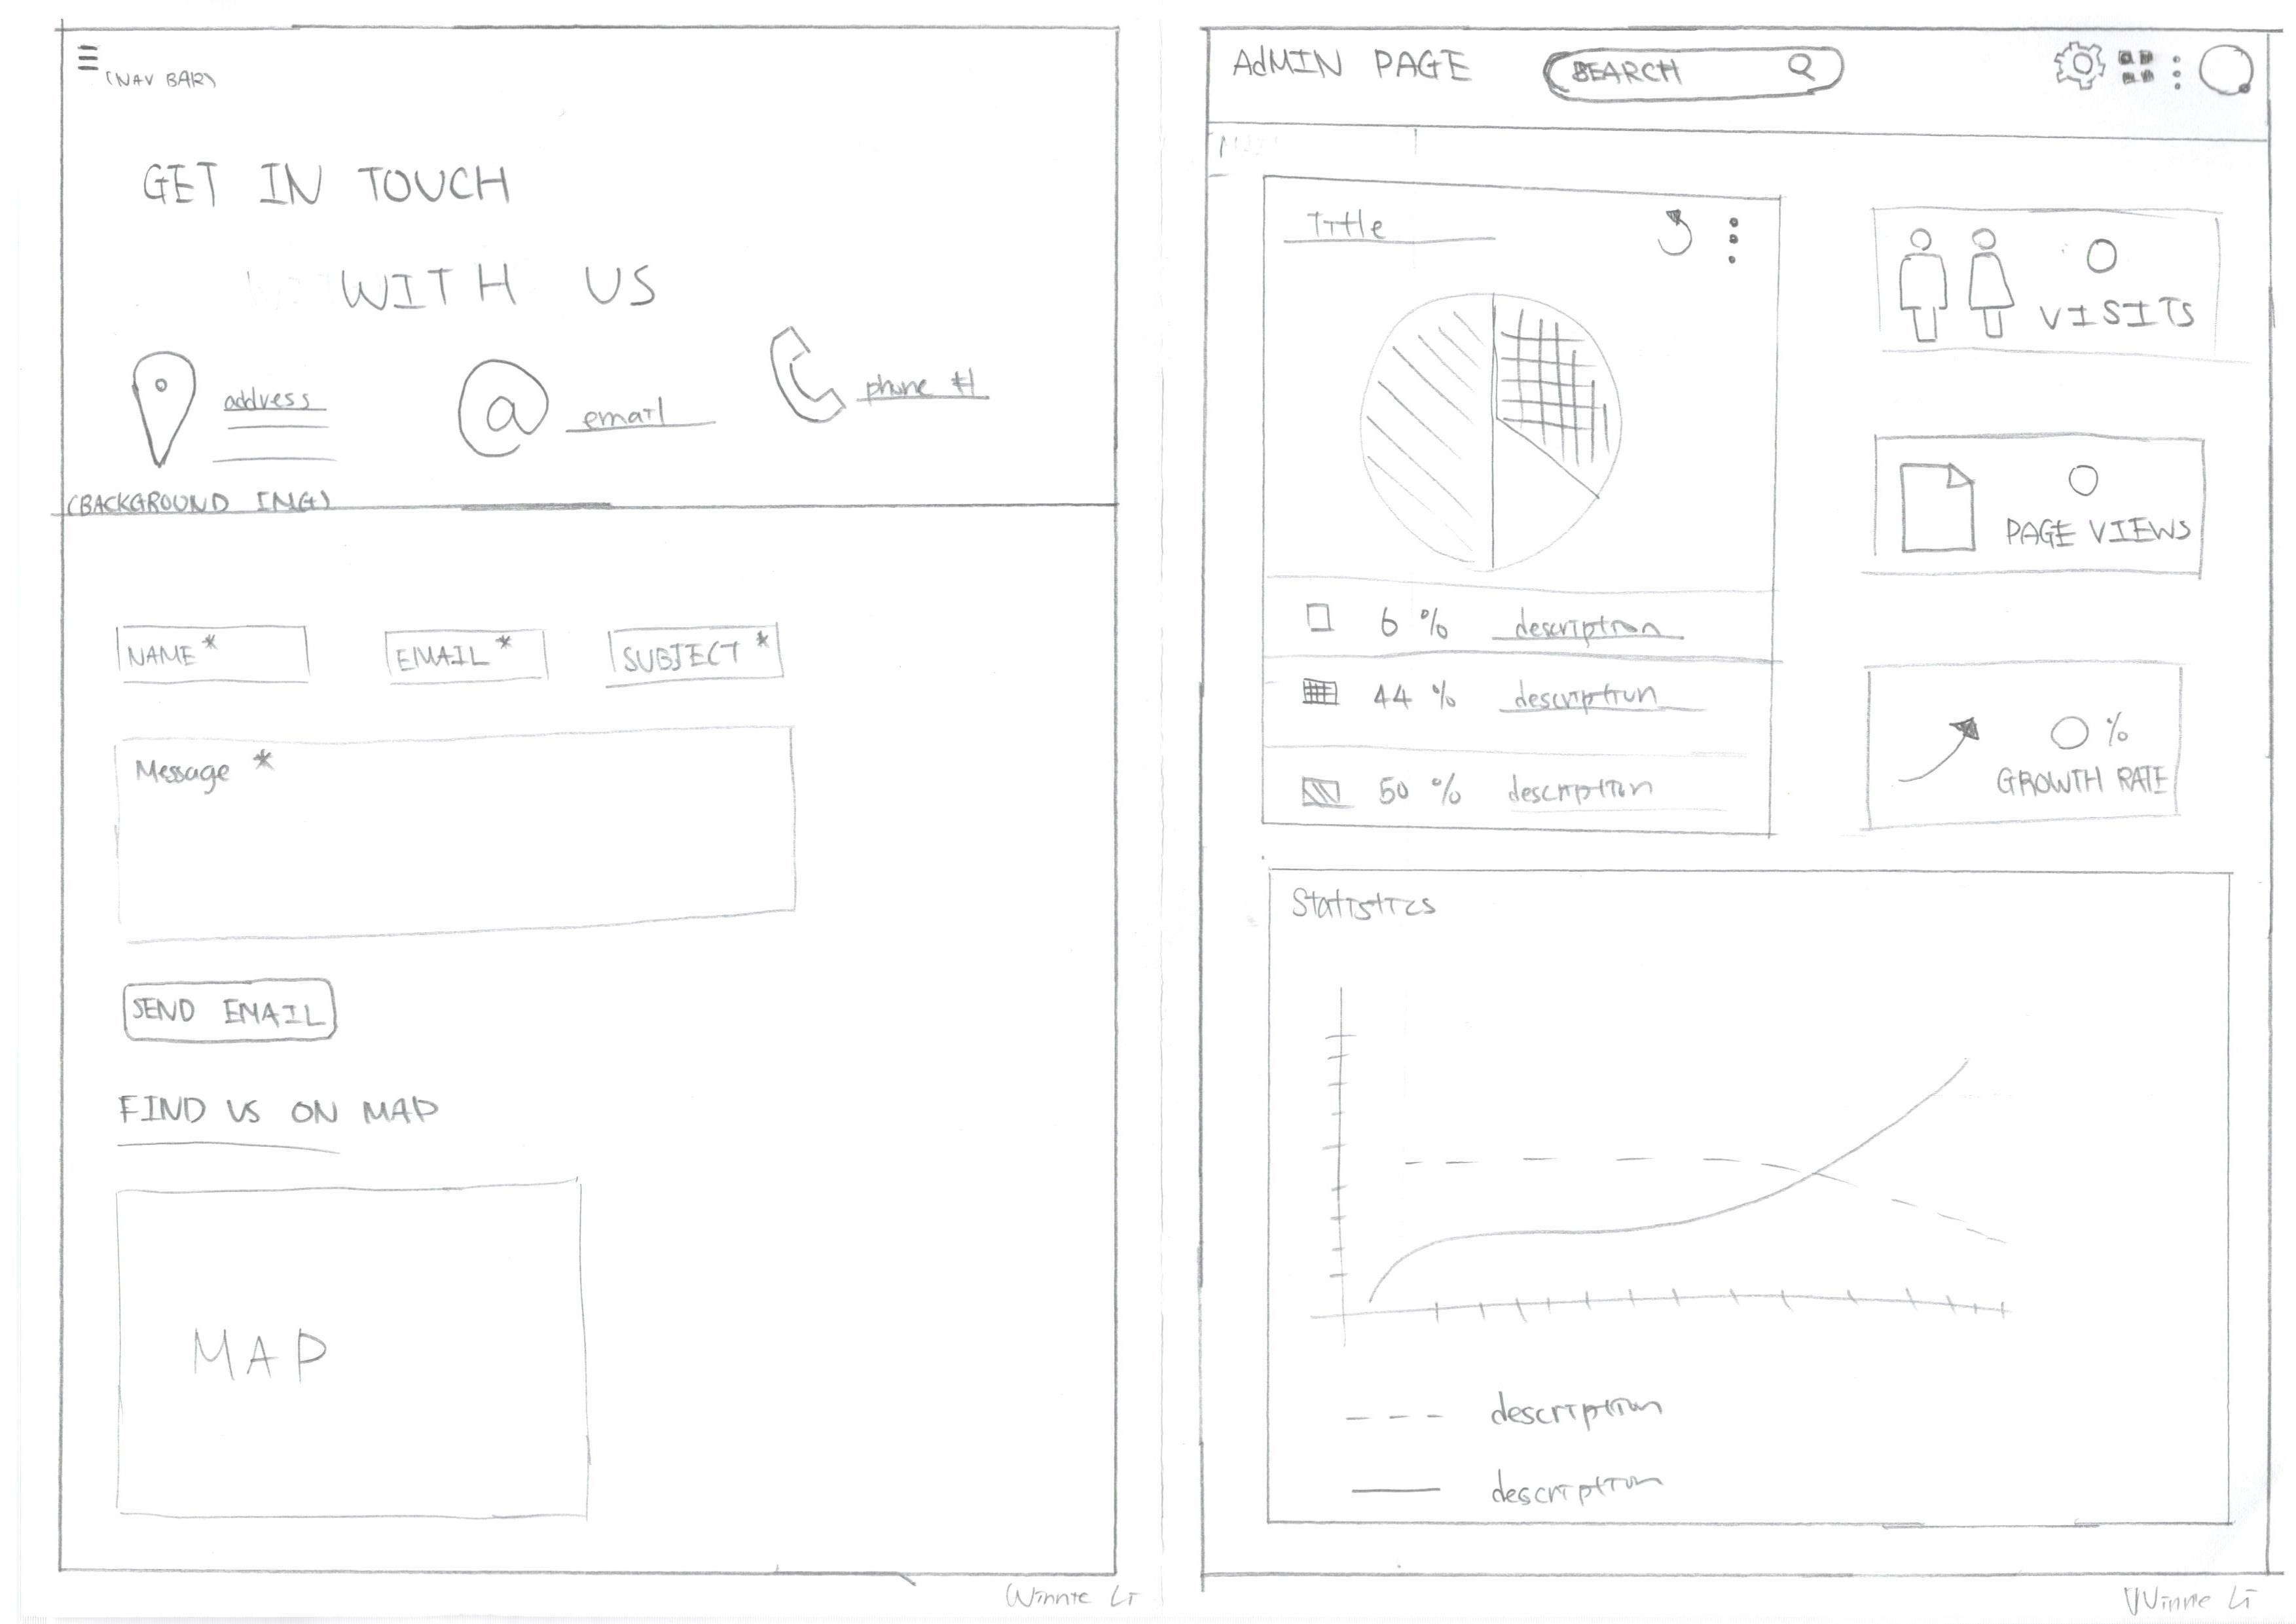 (NAV BAR)
GET IN TOUCH
WITH US
address
@ email
phone #
(BACKGROUND IMG)
NAME * EMAIL * SUBJECT *
Message *
SEND EMAIL
FIND US ON MAP
MAP
Winnie Li
AdMIN PAGE SEARCH
Title
6 % description
44 % description
50 % description
0
VISITS
0
PAGE VIEWS
0 %
GROWTH RATE
Statistics
description
description
Winnie Li